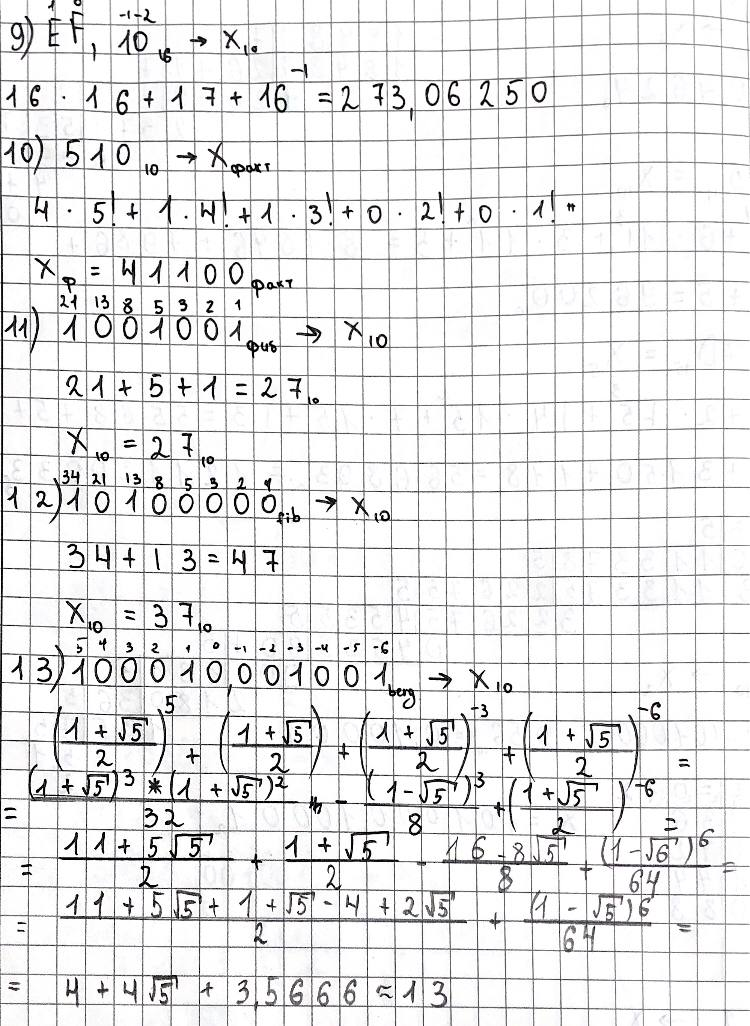 1 0 -1-2
9) EF, 10₁₆ → X₁₀
16 · 16 + 17 + 16⁻¹ = 273,06250
10) 510₁₀ → X факт
4 · 5! + 1 · 4! + 1 · 3! + 0 · 2! + 0 · 1! "
Xф = 41100 факт
21 13 8 5 3 2 1
11) 1001001 фиб → X₁₀
21 + 5 + 1 = 27₁₀
X₁₀ = 27₁₀
34 21 13 8 5 3 2 1
12) 10100000 fib → X₁₀
34 + 13 = 47
X₁₀ = 37₁₀
5 4 3 2 1 0 -1 -2 -3 -4 -5 -6
13) 100010,001001 berg → X₁₀
((1+√5)/2)⁵ + ((1+√5)/2) + ((1+√5)/2)⁻³ + ((1+√5)/2)⁻⁶ =
= (1+√5)³ * (1+√5)²/32 - (1-√5)³/8 + ((1+√5)/2)⁻⁶ =
= (11+5√5)/2 + (1+√5)/2 - (16-8√5)/8 + (1-√6)⁶/64 =
= (11+5√5+1+√5-4+2√5)/2 + (1-√5)6/64 =
= 4 + 4√5 + 3,5666 ≈ 13